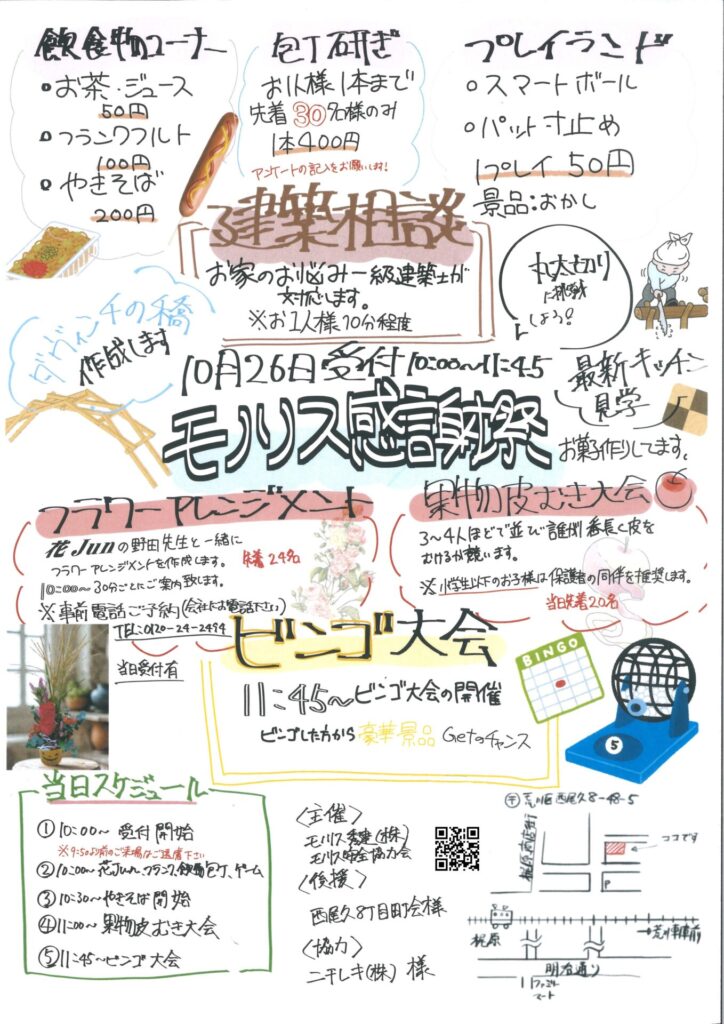 飲食物コーナー
・お茶・ジュース
50円
・フランクフルト
100円
・やきそば
200円
包丁研ぎ
お1人様1本まで
先着30名様のみ
1本400円
アンケートの記入をお願いします!
プレイランド
○スマートボール
○パット寸止め
1プレイ 50円
景品:おかし
建築相談
お家のお悩み一級建築士が
対応します。
※お1人様10分程度
丸太切り
に挑戦
しよう!
ダヴィンチの橋
作成します
10月26日 受付10:00~11:45
モノリス感謝祭
最新キッチン
見学
お菓子作りしてます。
フラワーアレンジメント
花Junの野田先生と一緒に
フラワーアレンジメントを作成します。
先着24名
10:00~30分ごとにご案内致します。
※事前電話ご予約(会社にお電話下さい)
TEL:0120-24-2494
当日受付有
果物皮むき大会
3~4人ほどで並び誰が1番長く皮を
むけるか競います。
※小学生以下のお子様は保護者の同伴を推奨します。
当日先着20名
ビンゴ大会
11:45~ビンゴ大会の開催
ビンゴした方から豪華景品Getのチャンス
BINGO
5
当日スケジュール
①10:00~ 受付開始
※9:50以前のご来場はご遠慮下さい
②10:00~花Jun、フランク、飲物、包丁、ゲーム
③10:30~やきそば開始
④11:00~果物皮むき大会
⑤11:45~ビンゴ大会
<主催>
モノリス秀建(株)
モノリス安全協力会
<後援>
西尾久8丁目町会様
<協力>
ニチレキ(株)様
〒荒川区西尾久8-48-5
梶原商店街
ココです
P
梶原
→荒川車庫前
明治通り
ファミリー
マート